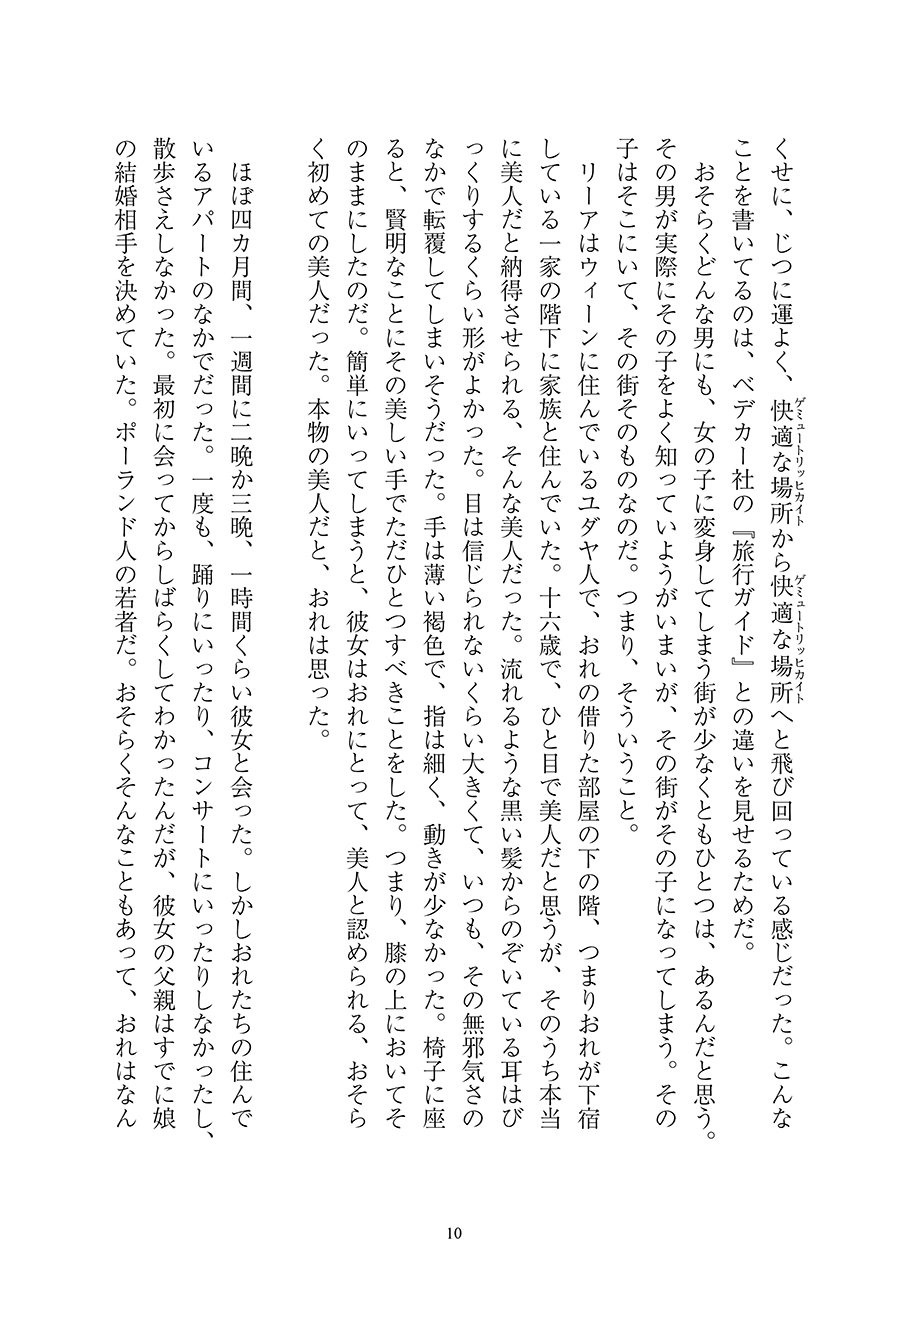 くせに、じつに運よく、快適な場所から快適な場所へと飛び回っている感じだった。こんな
ゲミュートリッヒカイト
ゲミュートリッヒカイト
ことを書いてるのは、ベデカー社の『旅行ガイド』との違いを見せるためだ。
おそらくどんな男にも、女の子に変身してしまう街が少なくともひとつは、あるんだと思う。
その男が実際にその子をよく知っていようがいまいが、その街がその子になってしまう。その
子はそこにいて、その街そのものなのだ。つまり、そういうこと。
リーアはウィーンに住んでいるユダヤ人で、おれの借りた部屋の下の階、つまりおれが下宿
している一家の階下に家族と住んでいた。十六歳で、ひと目で美人だと思うが、そのうち本当
に美人だと納得させられる、そんな美人だった。流れるような黒い髪からのぞいている耳はび
っくりするくらい形がよかった。目は信じられないくらい大きくて、いつも、その無邪気さの
なかで転覆してしまいそうだった。手は薄い褐色で、指は細く、動きが少なかった。椅子に座
ると、賢明なことにその美しい手でただひとつすべきことをした。つまり、膝の上においてそ
のままにしたのだ。簡単にいってしまうと、彼女はおれにとって、美人と認められる、おそら
く初めての美人だった。本物の美人だと、おれは思った。
ほぼ四カ月間、一週間に二晩か三晩、一時間くらい彼女と会った。しかしおれたちの住んで
いるアパートのなかでだった。一度も、踊りにいったり、コンサートにいったりしなかったし、
散歩さえしなかった。最初に会ってからしばらくしてわかったんだが、彼女の父親はすでに娘
の結婚相手を決めていた。ポーランド人の若者だ。おそらくそんなこともあって、おれはなん
10